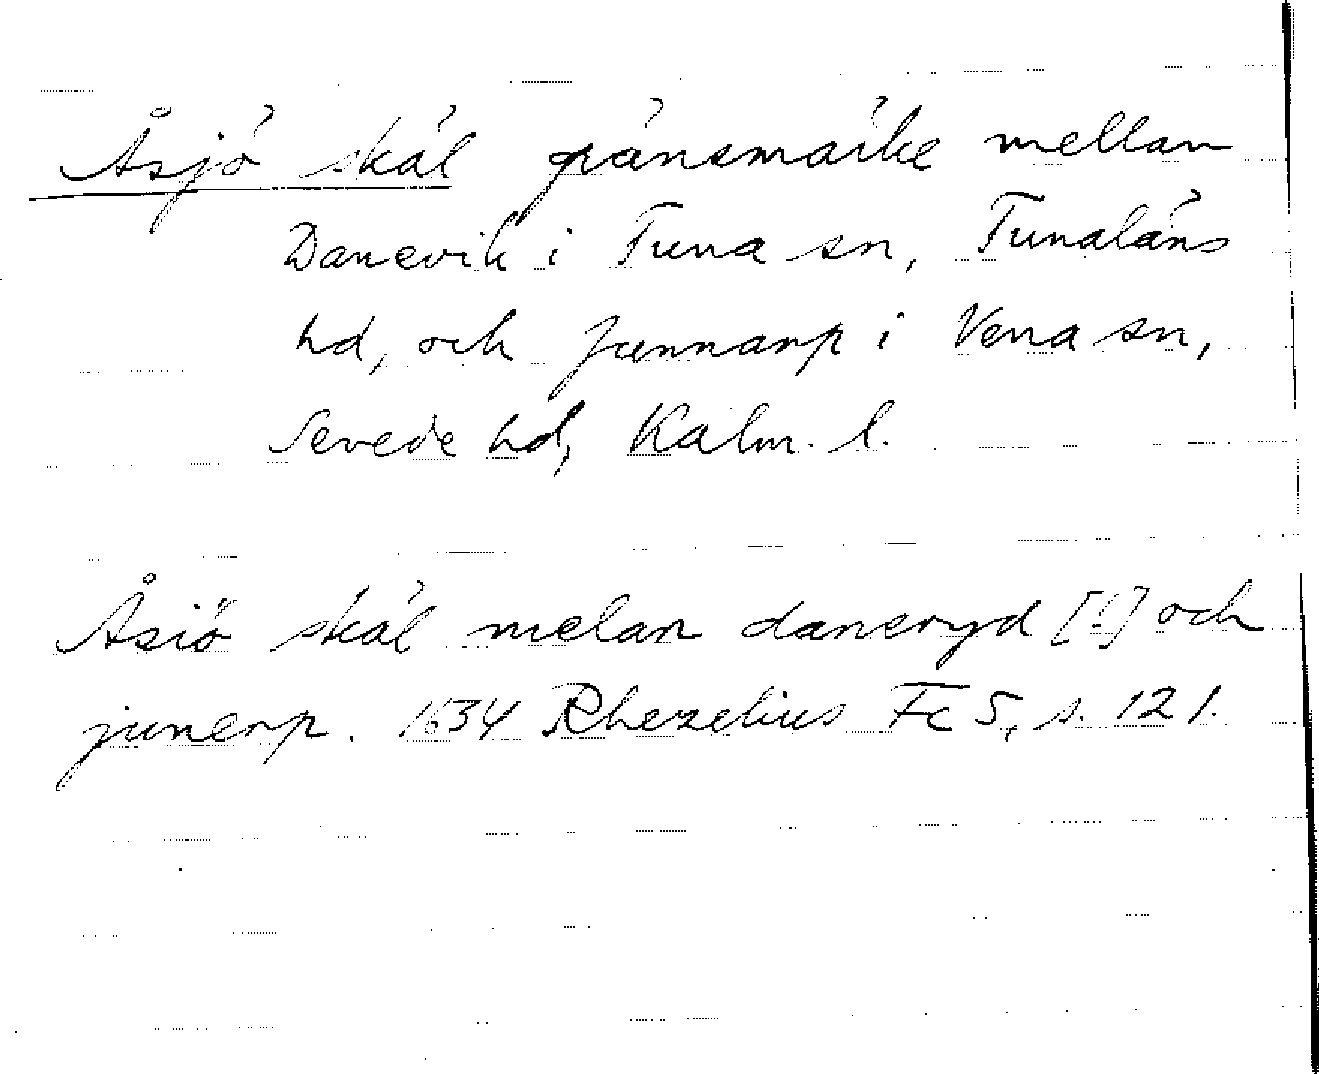 Åsjö skäl gränsmärke mellan
Danevik i Tuna sn, Tunaläns
hd, och Junnarp i Vena sn,
Sevede hd, Kalm. l.
Åsiö skäl melan daneryd [!] och
junerp. 1634 Rhezelius Fc 5, s. 121.